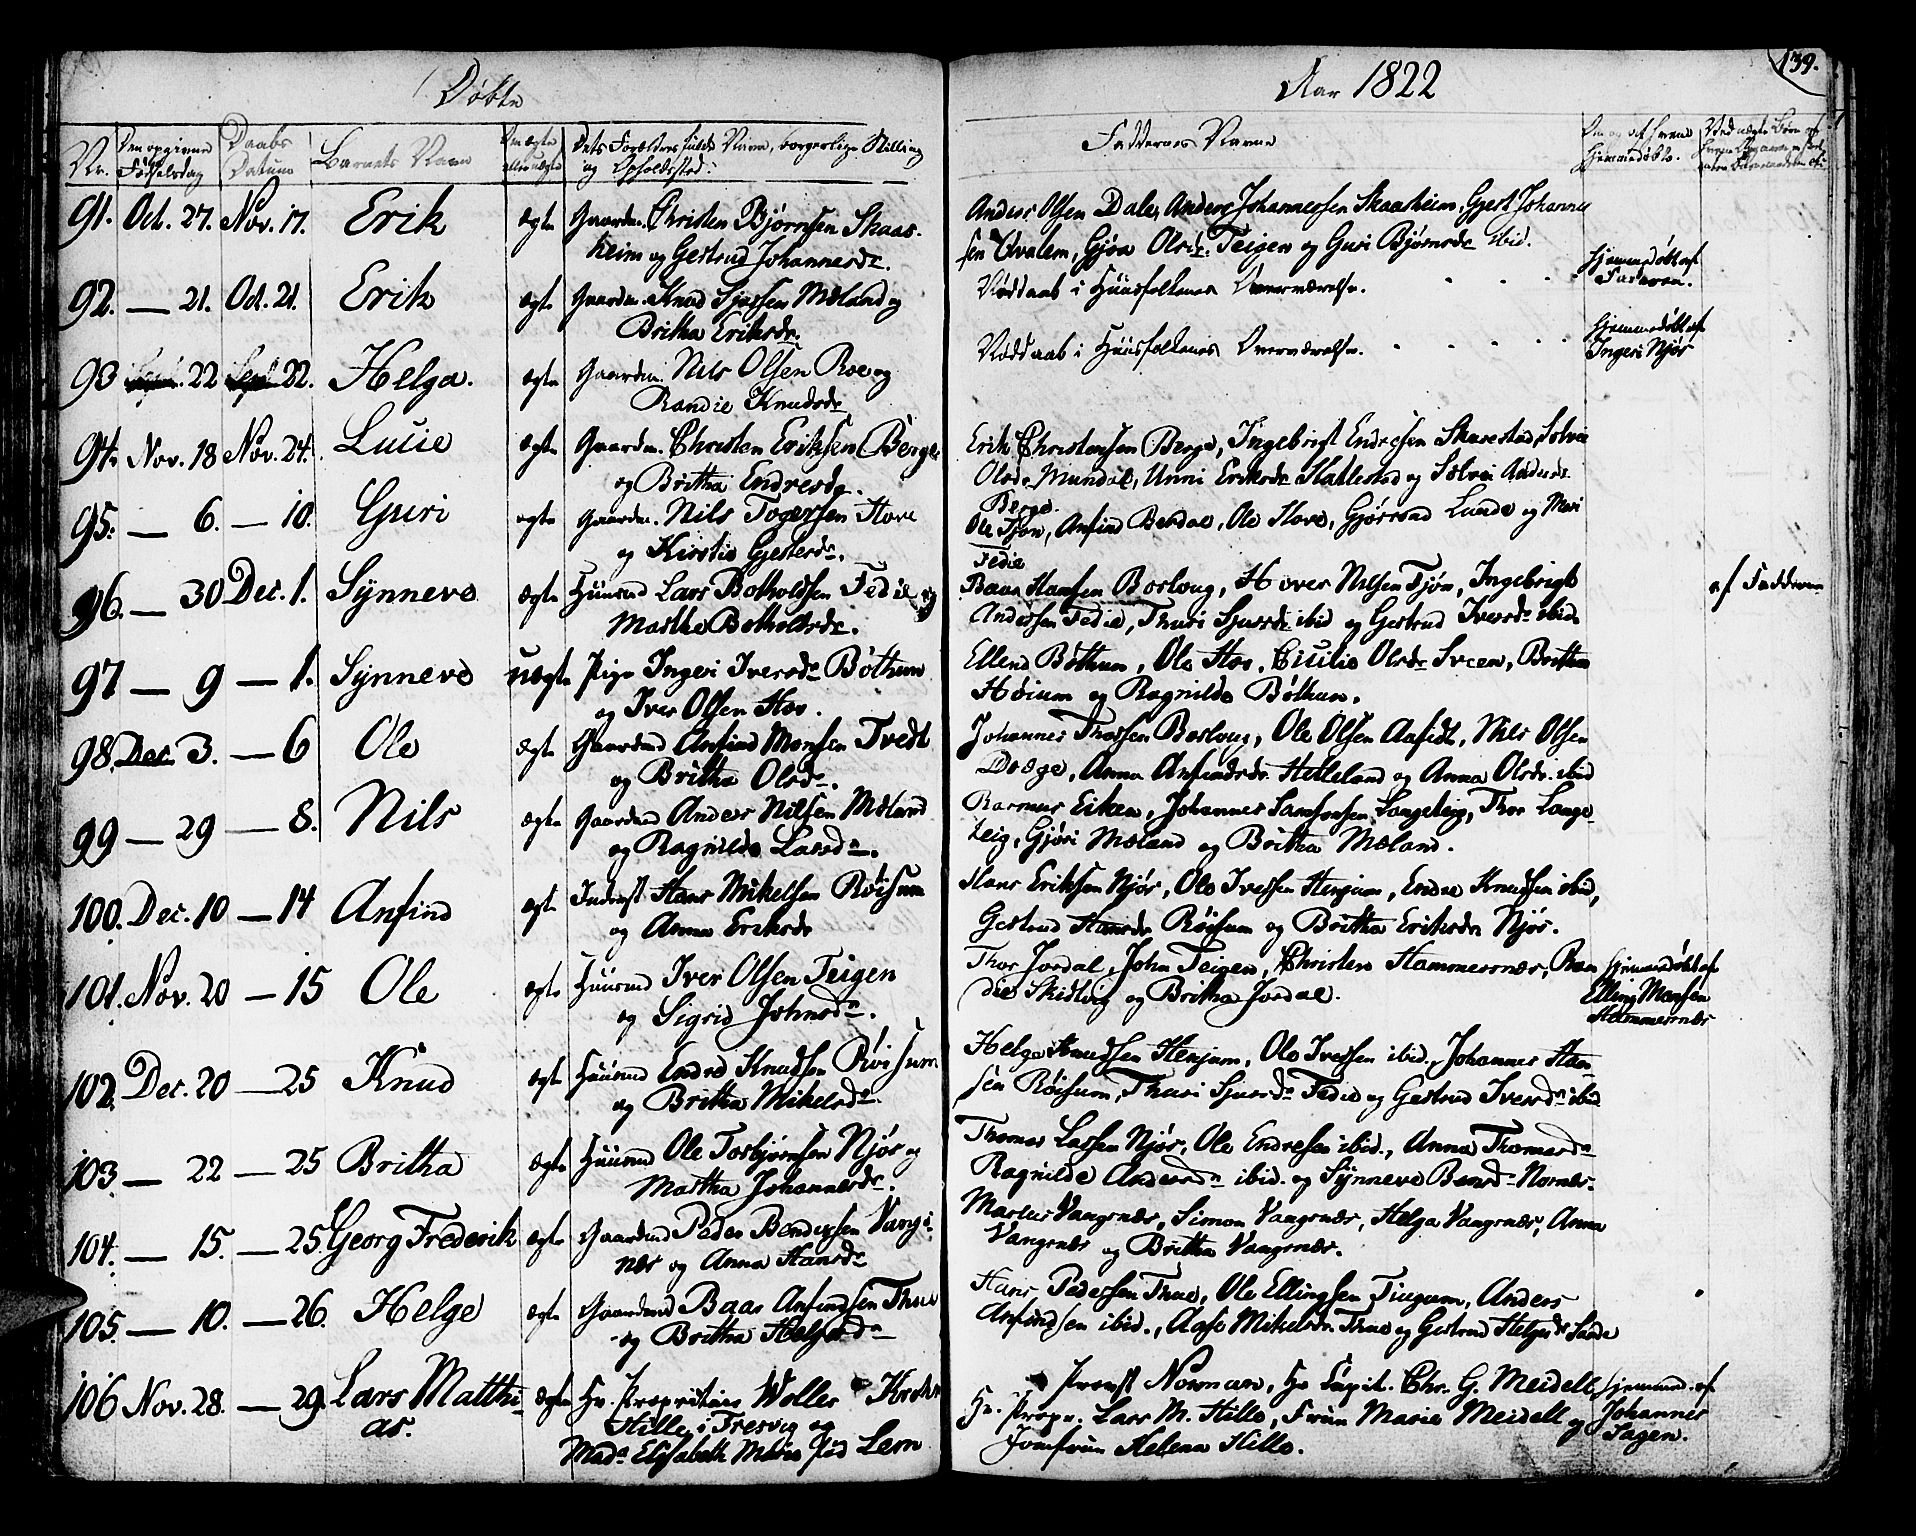 Døbte
Aar 1822
139.
Nr.
Den opgivne Fødselsdag
Daabs Datum
Barnets Navn
Om ægte eller uægte
Dets Forældres fulde Navn, borgerlige Stilling og Opholdssted.
Faddernes Navne
91. Oct. 27. Nov. 17. Erik ægte Gaardm. Christen Bjørnsen Skaas-
heim og Gertrud Johannesdr.
Anders Olsen Dale, Anders Johannessen Skaasheim, Gjest Johannes
sen Qvalem, Gjøa Olsdr. Teigen og Guri Bjørnsdr ibid.
92. — 21. Oct. 21. Erik ægte Gaardm. Knud Sjursen Mæland og
Britha Eriksdr.
Nøddaab i Huusfolkenes Overværelse.
Hjemmedøbt af
Faderen.
93 Sept. 22 Sept. 22. Helga. ægte Gaardm. Nils Olsen Roe og
Randie Knudsdr
Nøddaab i Huusfolkenes Overværelse.
Hjemmedøbt af
Ingeri Njøs
94. Nov. 18 Nov. 24. Lucie ægte Gaardm. Christen Eriksen Berge
og Britha Endresdr.
Erik Christensen Berge, Ingebrigt Endresen Skarestad, Solvie
Olsdr Mundal, Unni Eriksdr Hatlestad og Solvei Andersdr
Berge.
95. — 6. — 10. Guri ægte Gaardm. Nils Togersen Hove
og Kirstie Gjestsdr.
Ole Tjøn, Anfind Berdal, Ole Hove, Gjørond Lunde og Mari
Fedie
96. — 30 Dec. 1. Synneve ægte Huusmd Lars Botholdsen Fedie og
Marthe Botholdsdr.
Baar Hansen Borloug, Hover Nilsen Tjøn, Ingebrigt
Andersen Fedie, Thuri Sjursdr ibid og Gertrud Iversdr ibid
af Fadderne
97 — 9 — 1. Synneve uægte Pige Ingeri Iversdr Bøthun
og Iver Olsen Hov.
Ellend Bøthun, Ole Hov, Cicilie Olsdr Sveen, Britha
Høium og Ragnilde Bøthun.
98. Dec. 3. — 6 Ole ægte Gaardmd Anfind Monsen Tvedt
og Britha Olsdr.
Johannes Thorsen Borloug, Ole Olsen Aafedt, Nils Olsen
Dræge, Anna Anfindsdr Helleland og Anna Olsdr. ibid
99 — 29 — 8. Nils ægte Gaardmd Anders Nilsen Mæland
og Ragnilde Larsdr.
Rasmus Eiken, Johannes Samsonsen Langeteig, Thor Lange-
teig, Gjøri Mæland og Britha Mæland.
100. Dec. 10 — 14 Anfind ægte Inderst Hans Mikelsen Røisum
og Anna Eriksdr
Hans Eriksen Njøs, Ole Iversen Henjum, Endre Knudsen ibid,
Gertrud Hansdr Røisum og Britha Eriksdr Njøs.
101. Nov. 20 — 15 Ole ægte Huusmd Iver Olsen Teigen
og Sigrid Johnsdr.
Thor Jordal, John Teigen, Christen Hammersnæs, Ran
die Skidtvig og Britha Jordal.
Hjemmedøbt af
Elling Monsen
Hammersnæs
102. Dec. 20 — 25 Knud ægte Huusmd Endre Knudsen Røisum
og Britha Mikelsdr.
Helge Knudsen Henjum, Ole Iversen ibid., Johannes Han-
sen Røisum, Thuri Sjursdr Fedie og Gertrud Iversdr ibid
103 — 22 — 25 Britha ægte Huusmd Ole Torbjørnsen Njøs og
Martha Johannesdr.
Thomas Larsen Njøs, Ole Endresen ibid., Anna Thomasdr
Ragnilde Andersdr ibid. og Synneve Bensdr Nornæs.
104. — 15. — 25. Georg Frederik ægte Gaardmd Peder Bendixsen Vangs-
næs og Anna Hansdr
Marcus Vangsnæs, Simon Vangsnæs, Helga Vangsnæs, Anna
Vangsnæs og Britha Vangsnæs.
105. — 10. — 26. Helge ægte Gaardmd Baar Anfindsen Thue
og Britha Helgesdr
Hans Pedersen Thue, Ole Ellingsen Tiugum, Anders
Anfindsen ibid., Aase Mikelsdr Thue og Gertrud Helgesdr Sande
106 Nov. 28. — 29. Lars Matthi-
as. ægte Hr. Proprietair Woller Krohn
Hille i Fresvig og
Mada Elisabeth Marie fød Lem
Provst Norman, Hr Capit. Chr. G. Meidell
Hr. Propr. Lars M. Hille, Fruu Marie Meidell og
Jomfruu Helena Hille.
Hjemmed. af
Johannes
Sagen.